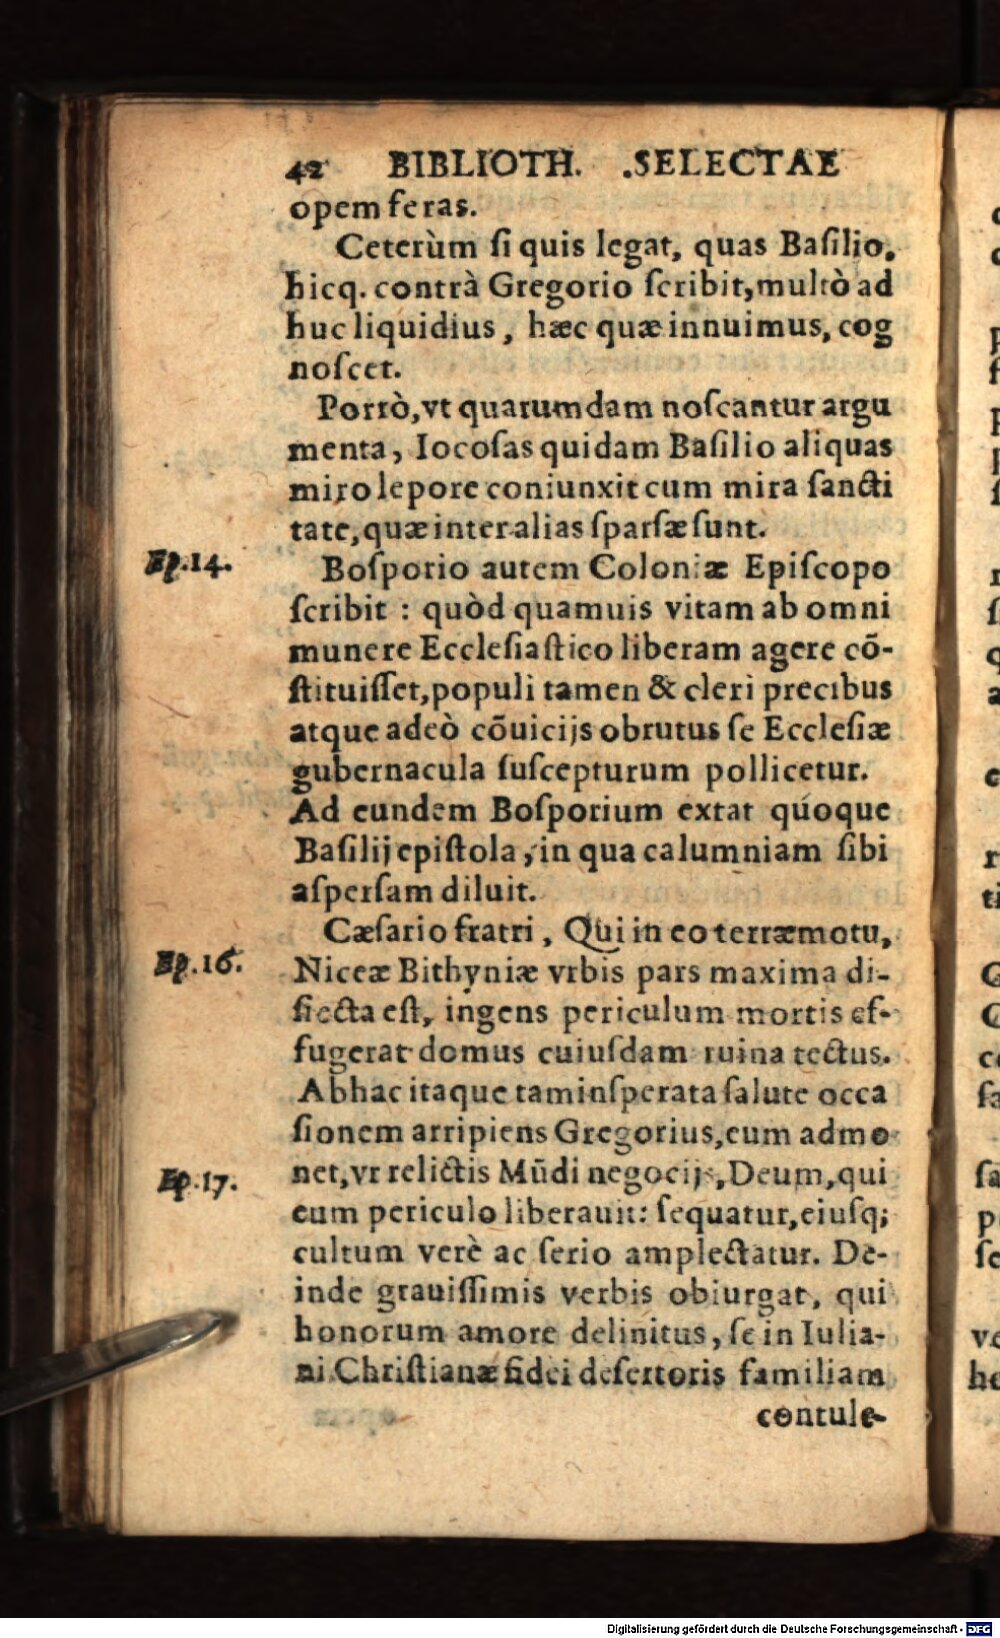 42 BIBLIOTH. .SELECTAE
opem feras.
Ceterùm ſi quis legat, quas Baſilio,
hicq. contrà Gregorio ſcribit, multò ad
huc liquidius, hæc quæ innuimus, cog
noſcet.
Porrò, vt quarumdam noſcantur argu
menta, Iocoſas quidam Baſilio aliquas
miro lepore coniunxit cum mira ſancti
tate, quæ inter alias ſparſæ ſunt.
Ep.14. Boſporio autem Coloniæ Epiſcopo
ſcribit : quòd quamuis vitam ab omni
munere Eccleſiaſtico liberam agere cõ-
ſtituiſſet, populi tamen & cleri precibus
atque adeò cõuicijs obrutus ſe Eccleſiæ
gubernacula ſuſcepturum pollicetur.
Ad eundem Boſporium extat quoque
Baſilij epiſtola, in qua calumniam ſibi
aſperſam diluit.
Cæſario fratri, Qui in eo terræmotu,
Ep.16. Niceæ Bithyniæ vrbis pars maxima di-
ſiecta eſt, ingens periculum mortis ef-
fugerat domus cuiuſdam ruina tectus.
Ab hac itaque tam inſperata ſalute occa
ſionem arripiens Gregorius, eum admo
Ep.17. net, vt relictis Mũdi negocijs, Deum, qui
eum periculo liberauit: ſequatur, eiuſq;
cultum verè ac ſerio amplectatur. De-
inde grauiſſimis verbis obiurgat, qui
honorum amore delinitus, ſe in Iulia-
ni Chriſtianæ fidei deſertoris familiam
contule-
Digitalisierung gefördert durch die Deutsche Forschungsgemeinschaft - DFG